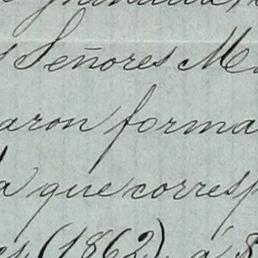 Señores M
aron forma
a que corresp
(1862), á 8